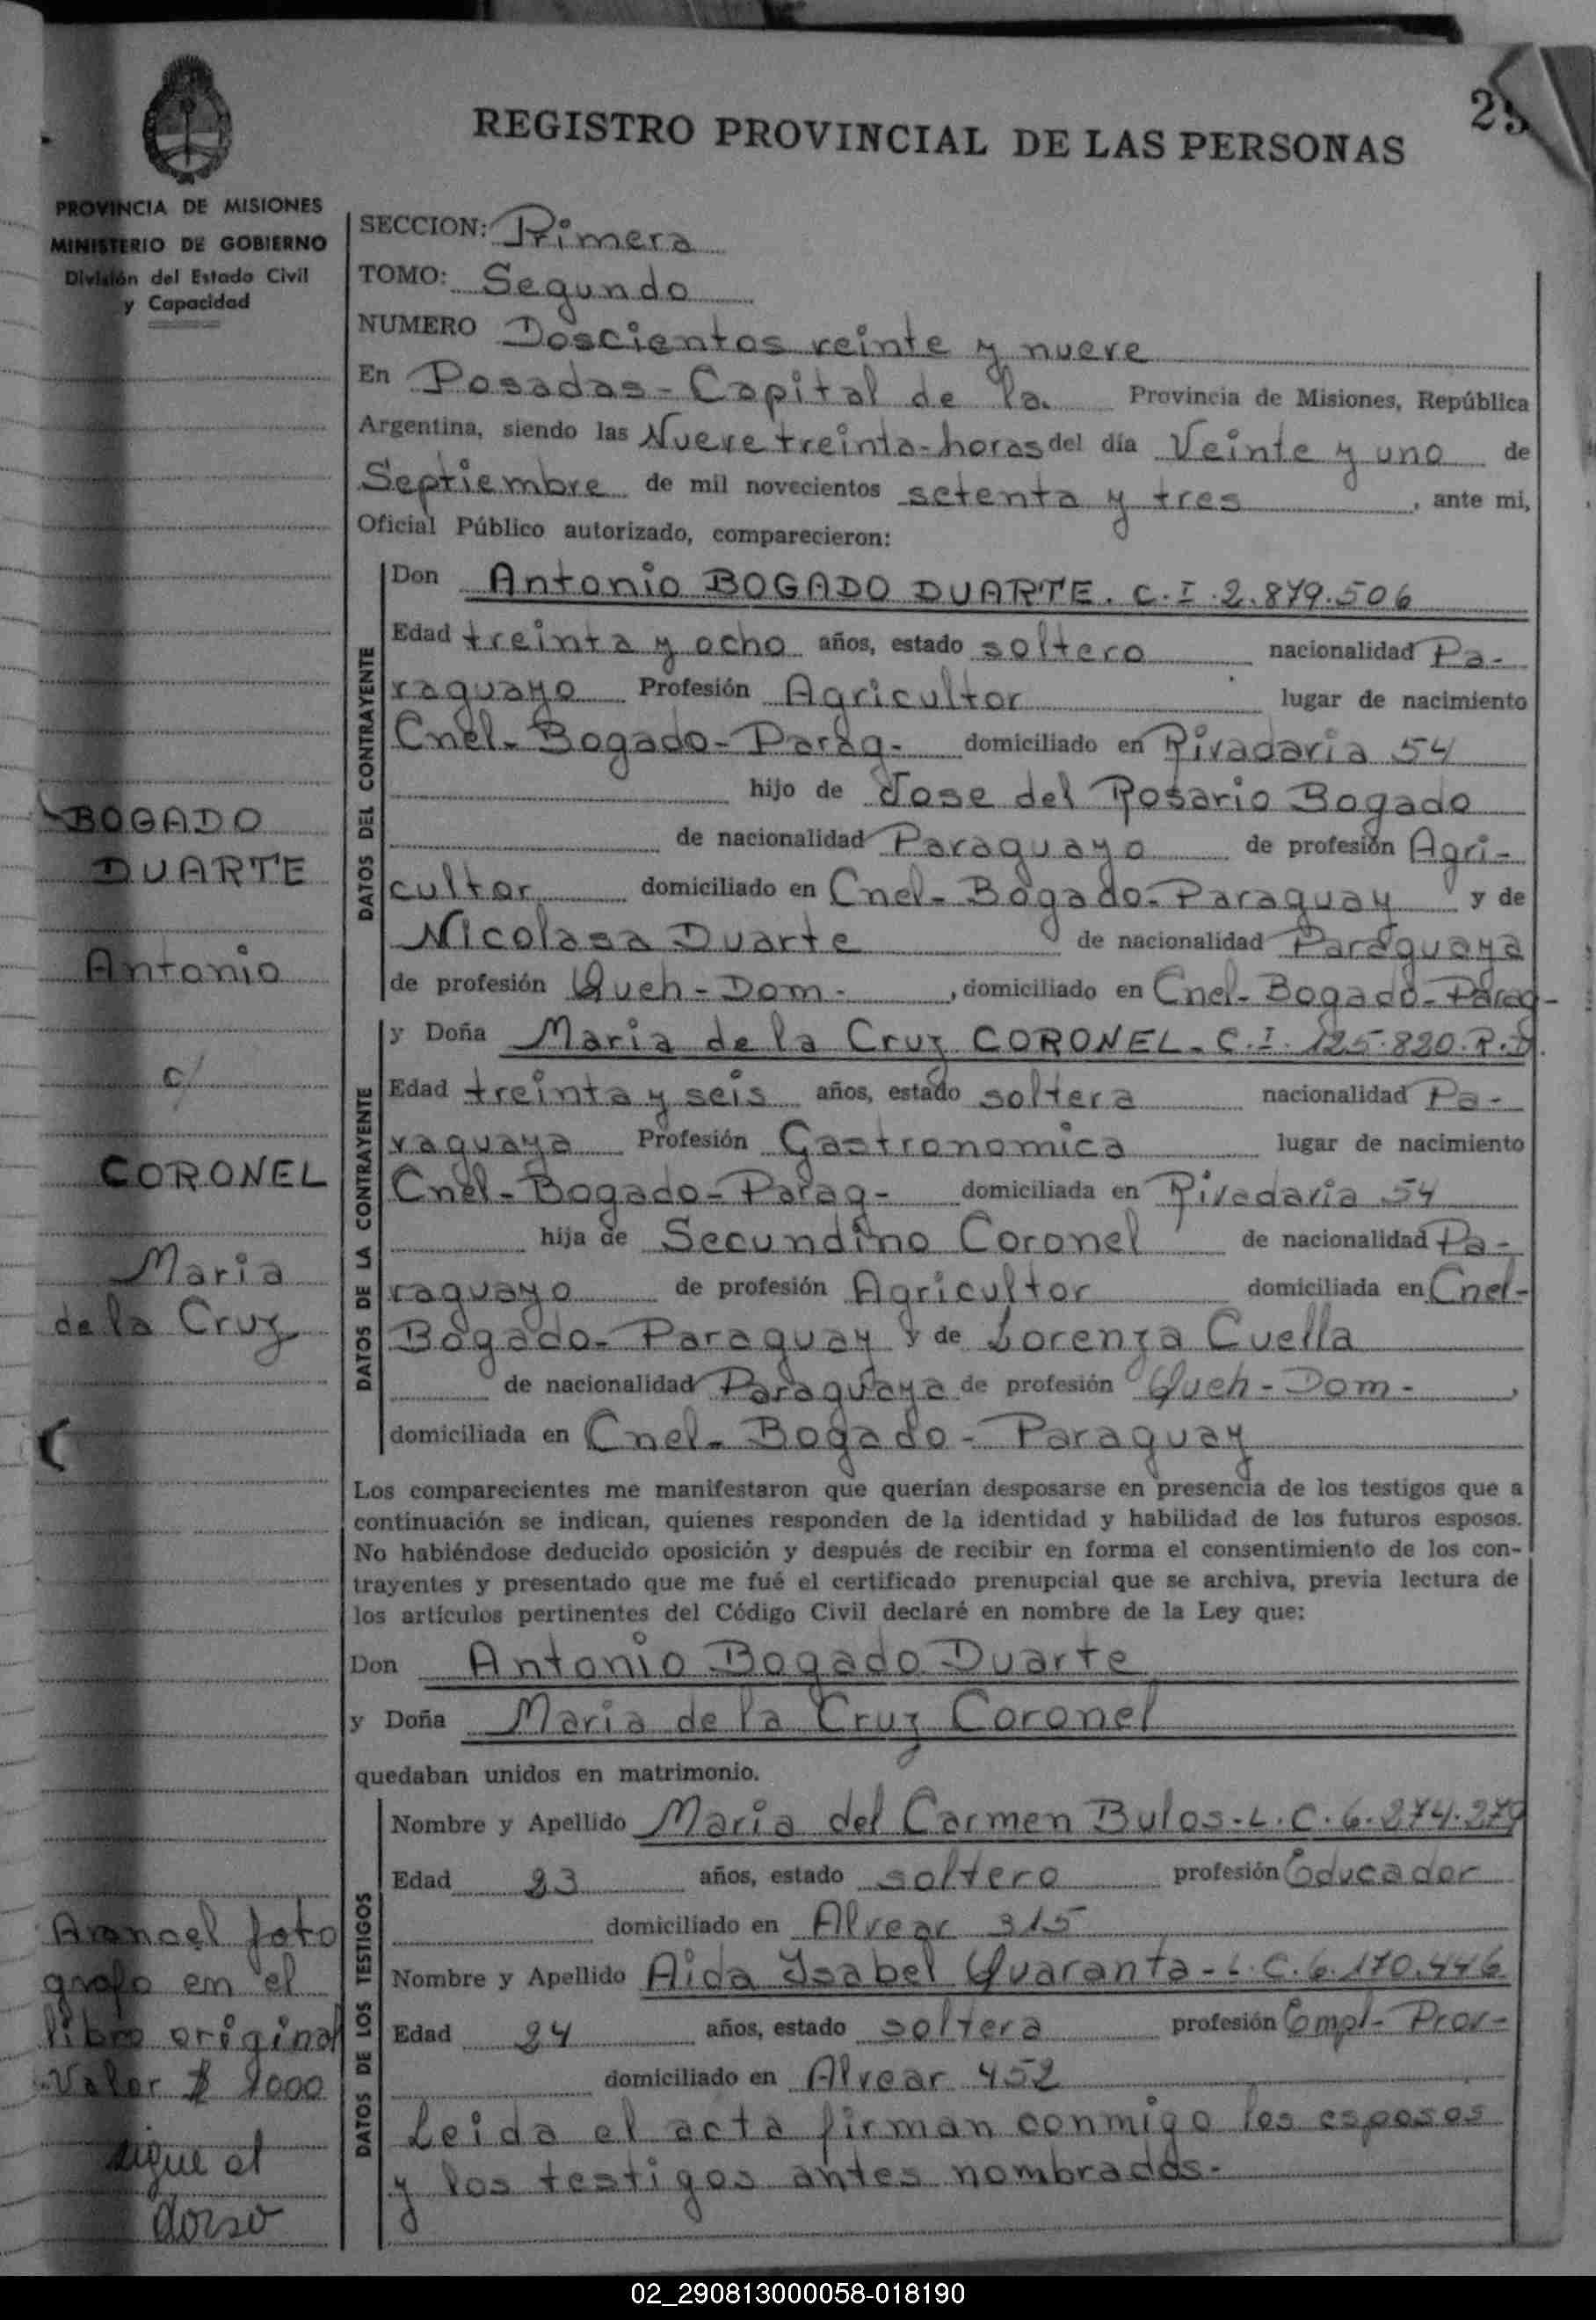 REGISTRO PROVINCIAL DE LAS PERSONAS
PROVINCIA DE MISIONES
MINISTERIO DE GOBIERNO
División del Estado Civil
y Capacidad
SECCION: Primera
TOMO: Segundo
NUMERO Doscientos veinte y nueve
En Posadas - Capital de la Provincia de Misiones, República
Argentina, siendo las Nueve treinta - horas del día Veinte y uno de
Septiembre de mil novecientos setenta y tres, ante mi,
Oficial Público autorizado, comparecieron:
DATOS DEL CONTRAYENTE
Don Antonio BOGADO DUARTE. C.I. 2.879.506
Edad treinta y ocho años, estado soltero nacionalidad Pa-
raguayo Profesión Agricultor lugar de nacimiento
Cnel- Bogado- Parag- domiciliado en Rivadavia 54
hijo de Jose del Rosario Bogado
de nacionalidad Paraguayo de profesión Agri-
cultor domiciliado en Cnel- Bogado- Paraguay y de
Nicolasa Duarte de nacionalidad Paraguaya
de profesión Queh- Dom-, domiciliado en Cnel- Bogado- Parag-
DATOS DE LA CONTRAYENTE
y Doña Maria de la Cruz CORONEL- C.I. 125.820.
Edad treinta y seis años, estado soltera nacionalidad Pa-
raguaya Profesión Gastronomica lugar de nacimiento
Cnel- Bogado- Parag- domiciliada en Rivadavia 54
hija de Secundino Coronel de nacionalidad Pa-
raguayo de profesión Agricultor domiciliada en Cnel-
Bogado- Paraguay y de Lorenza Cuella
de nacionalidad Paraguaya de profesión Queh- Dom-,
domiciliada en Cnel- Bogado- Paraguay
Los comparecientes me manifestaron que querían desposarse en presencia de los testigos que a
continuación se indican, quienes responden de la identidad y habilidad de los futuros esposos.
No habiéndose deducido oposición y después de recibir en forma el consentimiento de los con-
trayentes y presentado que me fué el certificado prenupcial que se archiva, previa lectura de
los artículos pertinentes del Código Civil declaré en nombre de la Ley que:
Don Antonio Bogado Duarte
y Doña Maria de la Cruz Coronel
quedaban unidos en matrimonio.
DATOS DE LOS TESTIGOS
Nombre y Apellido Maria del Carmen Bulos- L.C. 6.274.279
Edad 23 años, estado soltero profesión Educador
domiciliado en Alvear 315
Nombre y Apellido Aida Ysabel Quaranta- L.C. 6.170.446
Edad 24 años, estado soltera profesión Empl- Prov-
domiciliado en Alvear 452
Leida el acta firman conmigo los esposos
y los testigos antes nombrados-
BOGADO
DUARTE
Antonio
c/
CORONEL
Maria
de la Cruz
Arancel foto
grafo em el
libro original
Valor $ 2000
sigue al
dorso
02_290813000058-018190